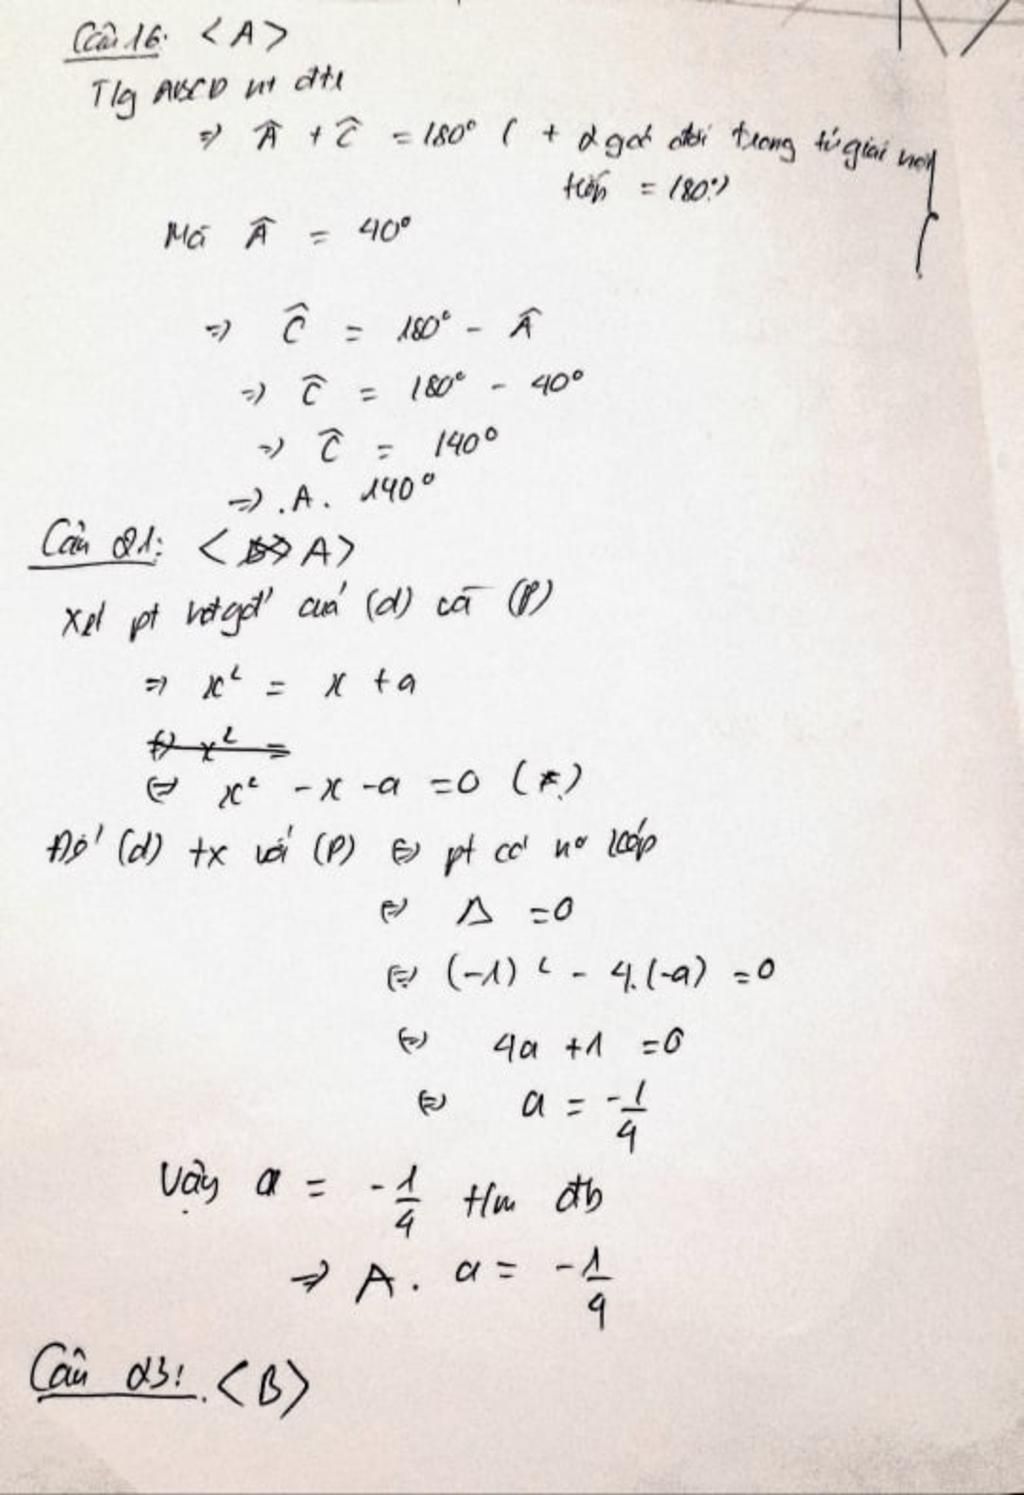 Câu 16: <A>
T/g ABCD nt đtr
=> Â + Ĉ = 180° ( + 2 góc đối trong tứ giác nội
tiếp = 180°)
Mà Â = 40°
=> Ĉ = 180° - Â
=> Ĉ = 180° - 40°
=> Ĉ = 140°
=> . A. 140°
Câu 21: < A>
Xét pt của (d) và (P)
=> x² = x + a
<=> x² =
<=> x² - x - a = 0 (*)
Để (d) tx với (P) <=> pt có no kép
<=> Δ = 0
<=> (-1)² - 4.(-a) = 0
<=> 4a + 1 = 0
<=> a = -1/4
Vậy a = -1/4 t/m đb
=> A. a = -1/4
Câu 23: <B>